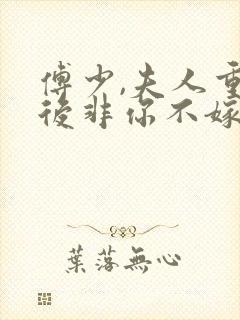 傅少,夫人重
後非你不嫁
葉落無心